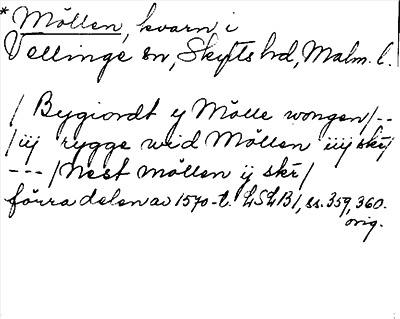 * Möllen, kvarn i
Vellinge sn, Skytts hd, Malm. l.
/ Bygiordt y Mölle wongen / - -
/ iij rygge wid Möllen iiij skr/
- - - / Nest möllen ij skr /
förra delen av 1570-t. LSLB 1, ss. 359, 360.
orig.